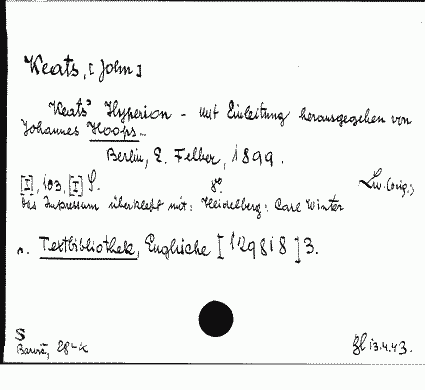 Keats, [John]
Keats' Hyperion - mit Einleitung herausgegeben von
Johannes Hoops.-
Berlin, E. Felber, 1899.
[I], 103, [I] S. 8° Lw. (orig.)
Das Impressum überklebt mit: Heidelberg: Carl Winter
Textbibliothek, Englische [ 3.
S
28-k
13.4.43.